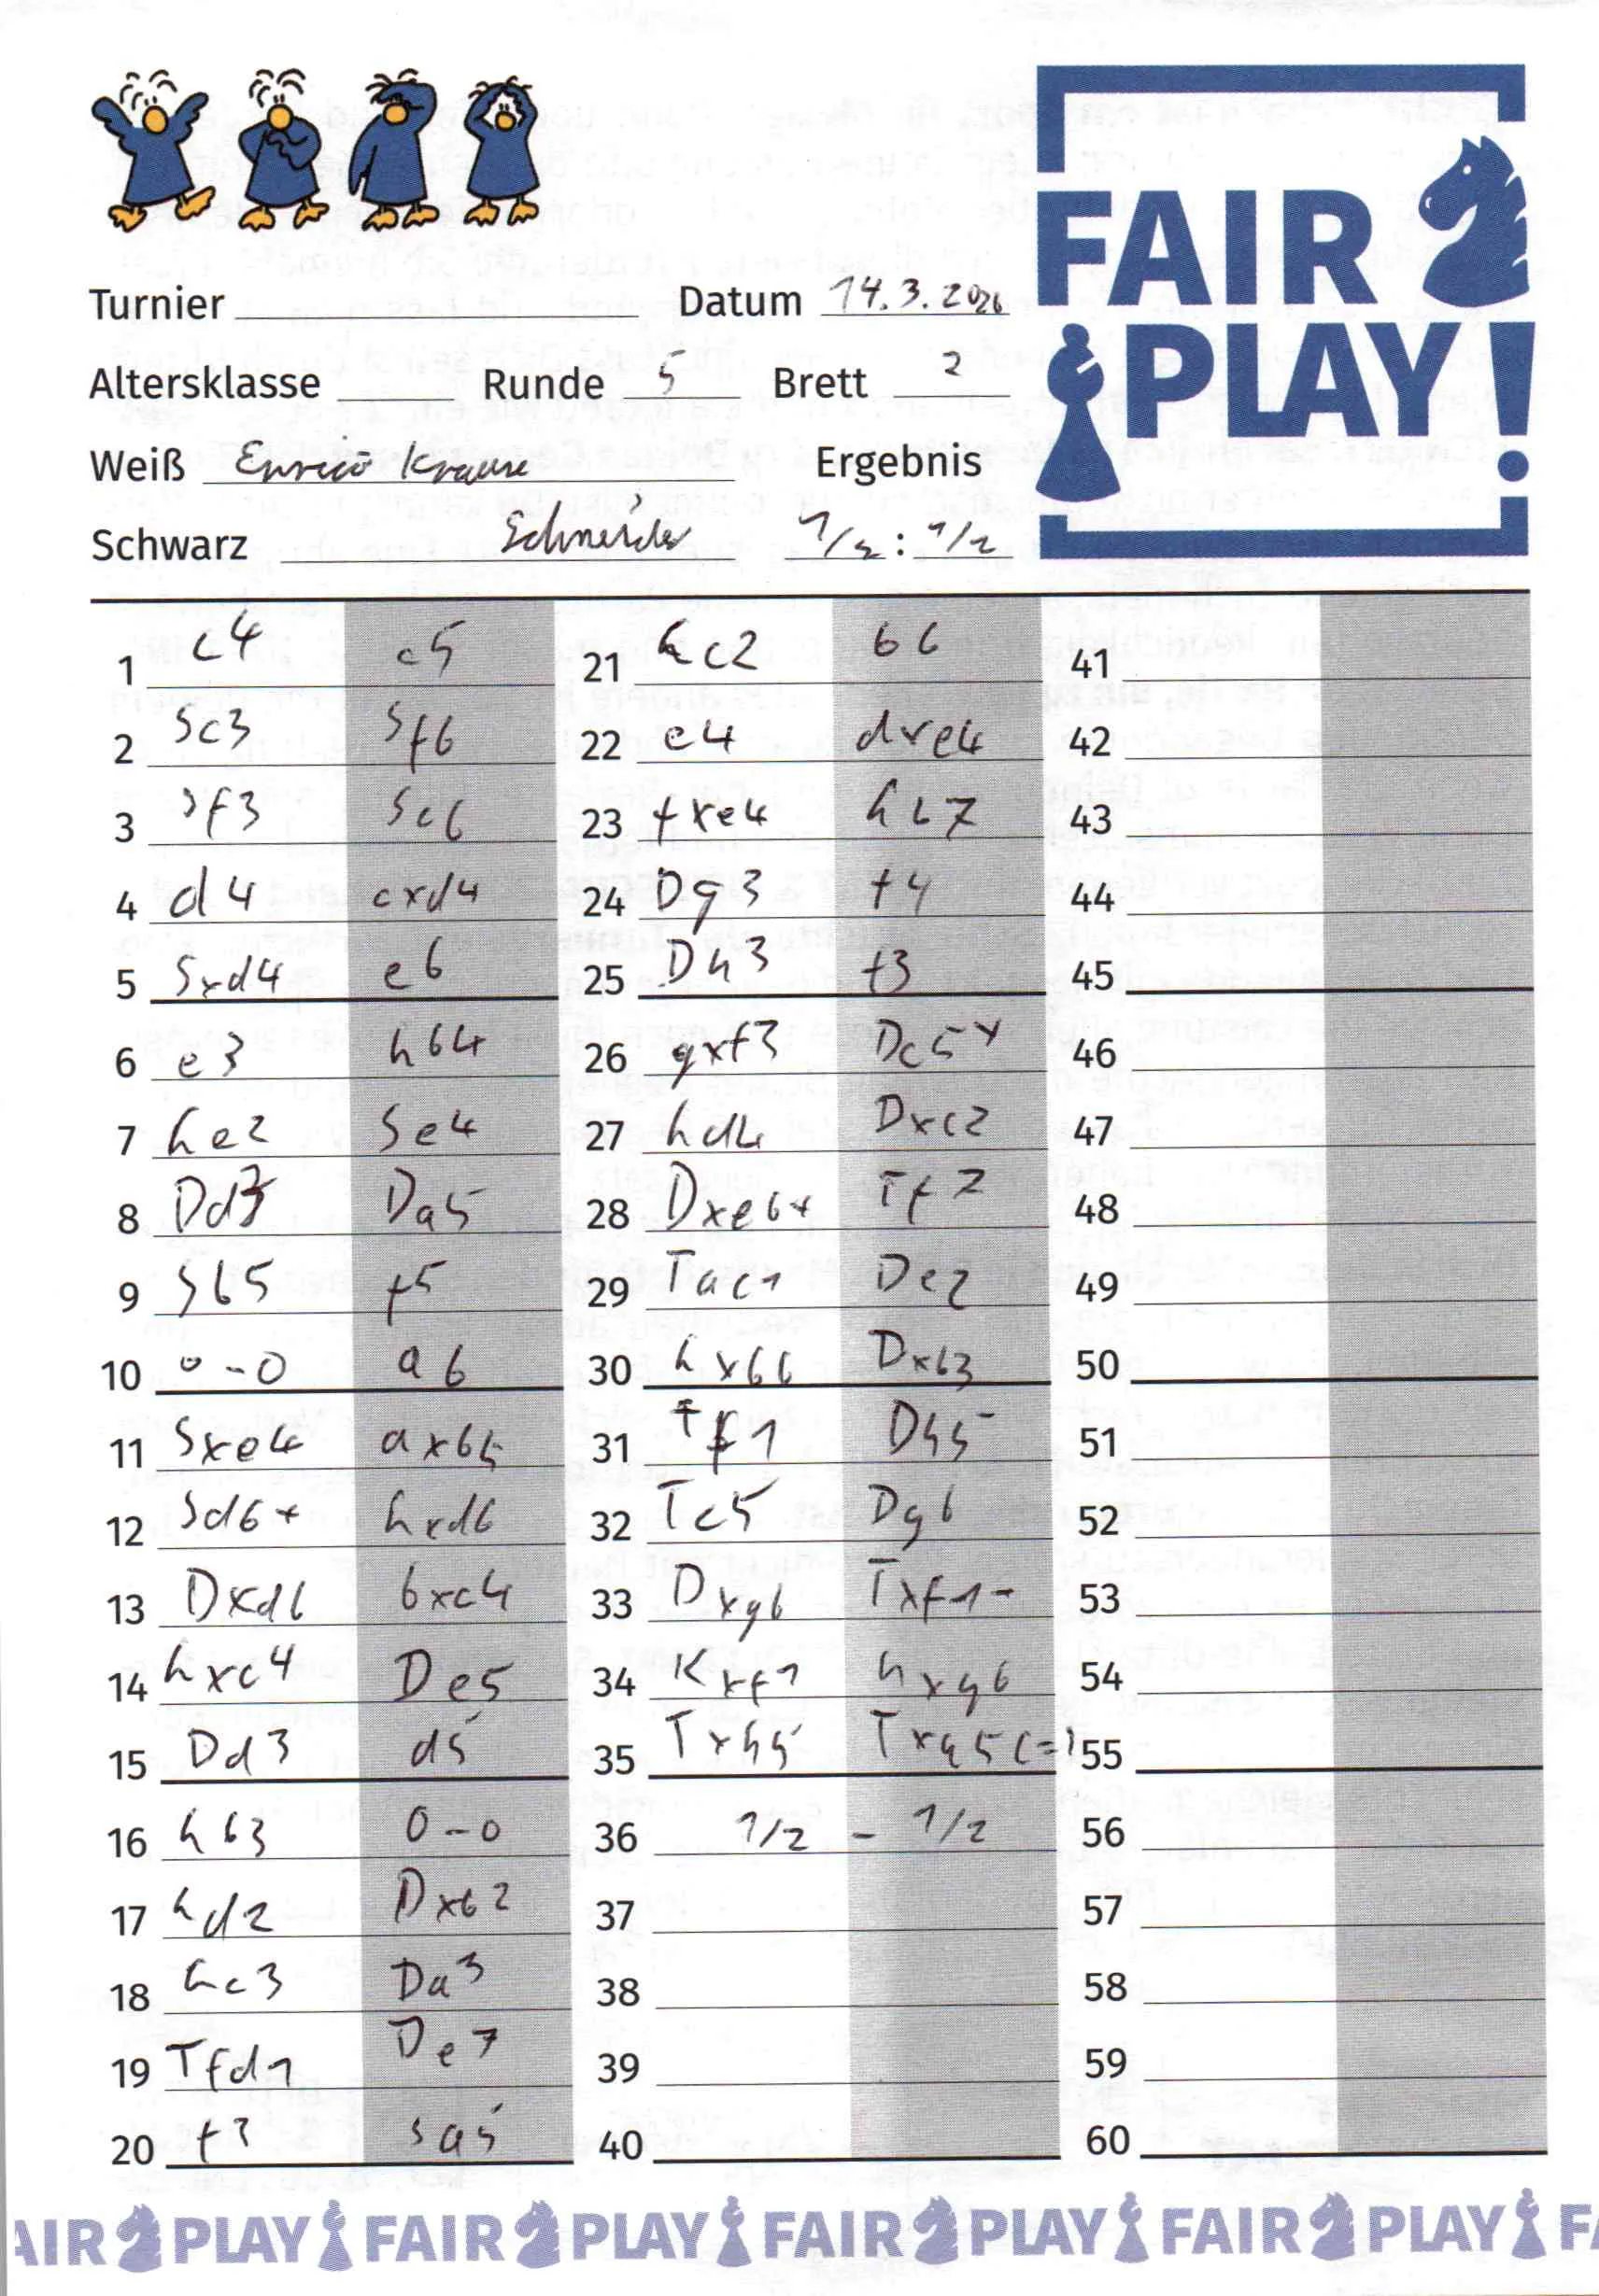 FAIR
PLAY!
Turnier
Datum 14.3.2026
Altersklasse
Runde 5
Brett 2
Weiß Enrico Krause
Ergebnis
Schwarz Schneider
1/2 : 1/2
1 c4 c5
2 Sc3 Sf6
3 Sf3 Sc6
4 d4 cxd4
5 Sxd4 e6
6 e3 hb4
7 he2 Se4
8 Dd3 Da5
9 Sb5 f5
10 0-0 a6
11 Sxe4 axb5
12 Sd6+ hxd6
13 Dxd6 bxc4
14 hxc4 De5
15 Dd3 d5
16 hb3 0-0
17 hd2 Dxb2
18 hc3 Da3
19 Tfd1 De7
20 f3 Sa5
21 hc2 b6
22 e4 dxe4
23 fxe4 hb7
24 Dg3 f4
25 Dh3 f3
26 gxf3 Dc5+
27 hd4 Dxc2
28 Dxe6+ Tf7
29 Tac1 De2
30 hxb6 Dxb3
31 Tf1 Dh5
32 Tc5 Dg6
33 Dxg6 Txf1-
34 Kxf1 hxg6
35 Txh5 Txa5 (=)
36 1/2 - 1/2
37
38
39
40
41
42
43
44
45
46
47
48
49
50
51
52
53
54
55
56
57
58
59
60
AIR PLAY FAIR PLAY FAIR PLAY FAIR PLAY FA